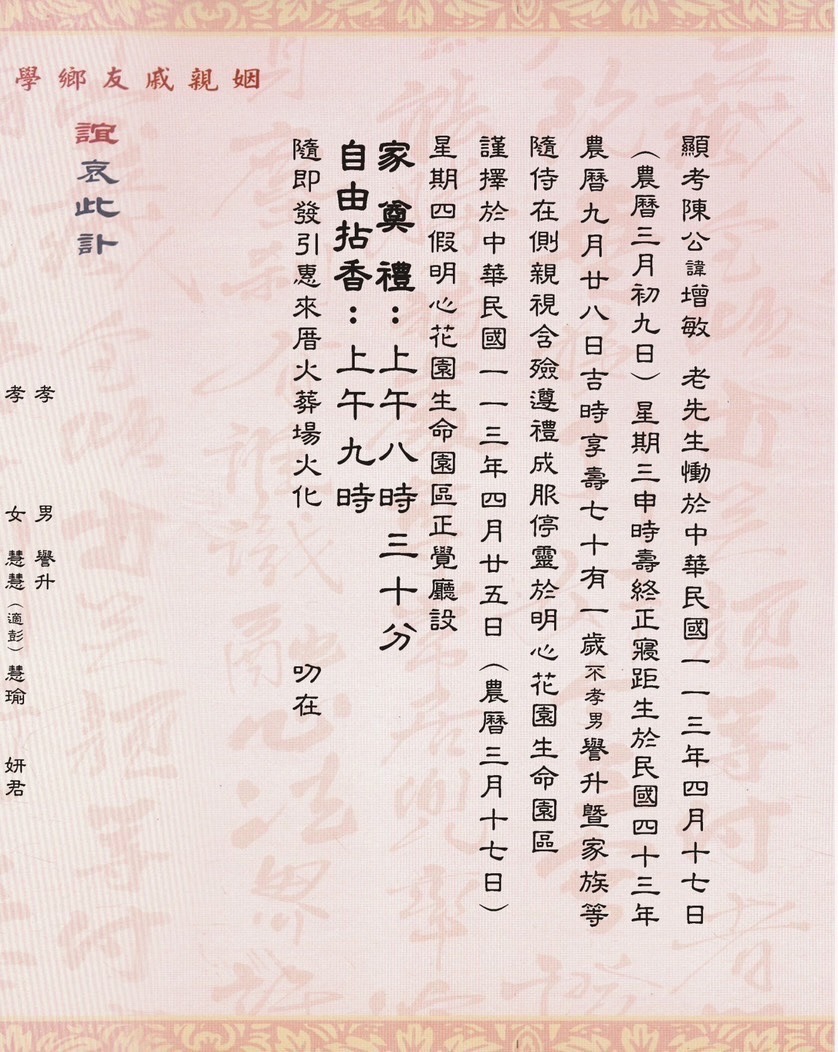 顯考陳公諱增敏 老先生慟於中華民國一一三年四月十七日
（農曆三月初九日）星期三申時壽終正寢距生於民國四十三年
農曆九月廿八日吉時享壽七十有一歲不孝男譽升暨家族等
隨侍在側親視含殮遵禮成服停靈於明心花園生命園區
謹擇於中華民國一一三年四月廿五日（農曆三月十七日）
星期四假明心花園生命園區正覺廳設
家奠禮：上午八時三十分
自由拈香：上午九時
隨即發引惠來厝火葬場火化
叨在
姻親戚友鄉學
誼哀此訃
孝 男 譽升
孝 女 慧慧（適彭）慧瑜 妍君